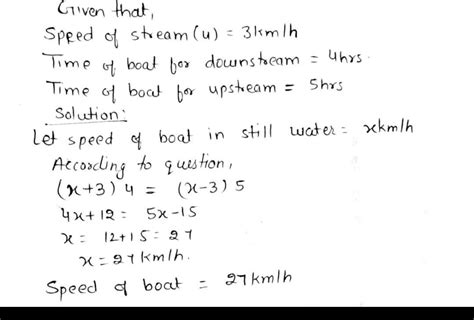 Given that,
Speed of stream (u) = 3km/h
Time of boat for downstream = 4hrs.
Time of boat for upstream = 5hrs
Solution:
Let speed of boat in still water = xkm/h
According to question,
(x+3) 4 = (x-3) 5
4x+12 = 5x-15
x = 12+15 = 27
x = 27km/h.
Speed of boat = 27km/h